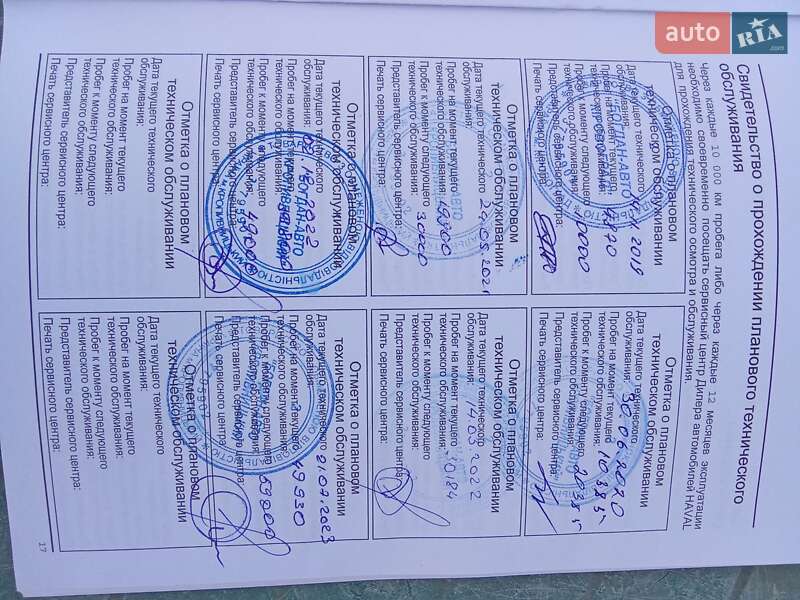 auto RIA.com
Свидетельство о прохождении планового технического
обслуживания
Через каждые 10 000 км пробега либо через каждые 12 месяцев эксплуатации
необходимо своевременно посещать сервисный центр Дилера автомобилей HAVAL
для прохождения технического осмотра и обслуживания.
Отметка о плановом
техническом обслуживании
Дата текущего технического
обслуживания:
Пробег на момент текущего
Пробег к моменту следующего
технического обслуживания:
Представитель сервисного центра:
Печать сервисного центра:
Отметка о плановом
техническом обслуживании
Дата текущего технического
обслуживания: 30.06.2020
Пробег на момент текущего
технического обслуживания: 10385
Пробег к моменту следующего
технического обслуживания: 20385
Представитель сервисного центра:
Печать сервисного центра:
Отметка о плановом
техническом обслуживании
Дата текущего технического
обслуживания: 24.05.2021
Пробег на момент текущего
технического обслуживания:
Пробег к моменту следующего
технического обслуживания: 30000
Представитель сервисного центра:
Печать сервисного центра:
Отметка о плановом
техническом обслуживании
Дата текущего технического
обслуживания: 14.03.2022
Пробег на момент текущего
технического обслуживания:
Пробег к моменту следующего
технического обслуживания:
Представитель сервисного центра:
Печать сервисного центра:
Отметка о плановом
техническом обслуживании
Дата текущего технического
обслуживания:
Пробег на момент текущего
технического обслуживания:
Пробег к моменту следующего
технического обслуживания: 49000
Представитель сервисного центра:
Печать сервисного центра:
Отметка о плановом
техническом обслуживании
Дата текущего технического
обслуживания: 21.07.2023
Пробег на момент текущего
технического обслуживания: 49930
Пробег к моменту следующего
технического обслуживания: 59000
Представитель сервисного центра:
Печать сервисного центра:
Отметка о плановом
техническом обслуживании
Дата текущего технического
обслуживания:
Пробег на момент текущего
технического обслуживания:
Пробег к моменту следующего
технического обслуживания:
Представитель сервисного центра:
Печать сервисного центра:
Отметка о плановом
техническом обслуживании
Дата текущего технического
обслуживания:
Пробег на момент текущего
технического обслуживания:
Пробег к моменту следующего
технического обслуживания:
Представитель сервисного центра:
Печать сервисного центра:
17